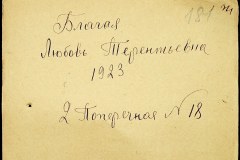 Благая
Любовь Терентьевна
1923
2 Поперечная N 18